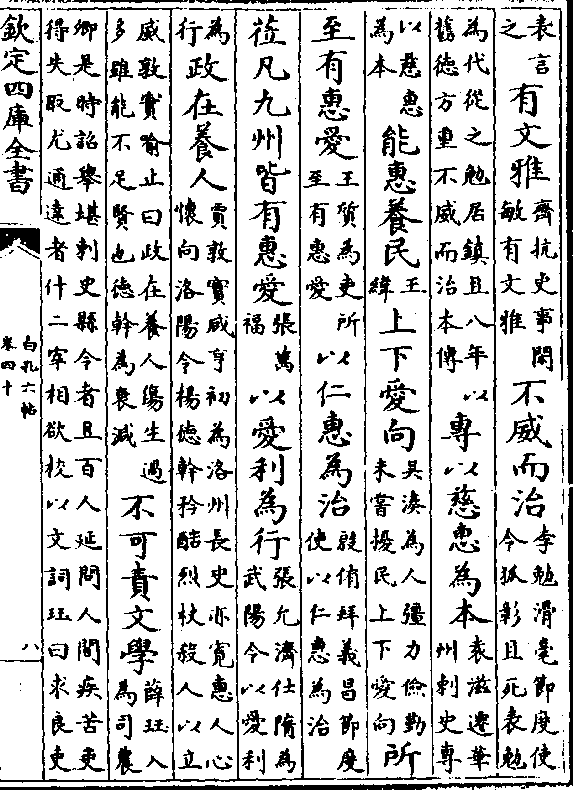 表言之有文雅齊抗史事閑敏有文雅不威而治李勉滑毫節度使令狐彰且死表勉
為代從之勉居鎮且八年舊德方重不威而治本傳以專以慈惠為本袁滋遷華州刺史專
以慈惠為本能惠養民王緯上下愛向吳湊為人彊力儉勤未嘗擾民上下愛向所
至有惠愛王質為吏所至有惠愛以仁惠為治殷侑拜義昌節度使以仁惠為治
莅凡九州皆有惠愛張萬福以愛利為行張允濟仕隋為武陽令以愛利
為行政在養人賈敦實咸亨初為洛州長史亦寛惠人心懷向洛陽令楊德幹矜酷烈杖殺人以立
威敦實喻止曰政在養人傷生過多雖能不足賢也德幹為衰減不可責文學薛珏入為司農
卿是時詔舉堪刺史縣令者且百人延問人間疾苦吏得失取尤通達者什二宰相欲校以文詞珏曰求良吏
欽定四庫全書
白孔六帖
卷四十
八